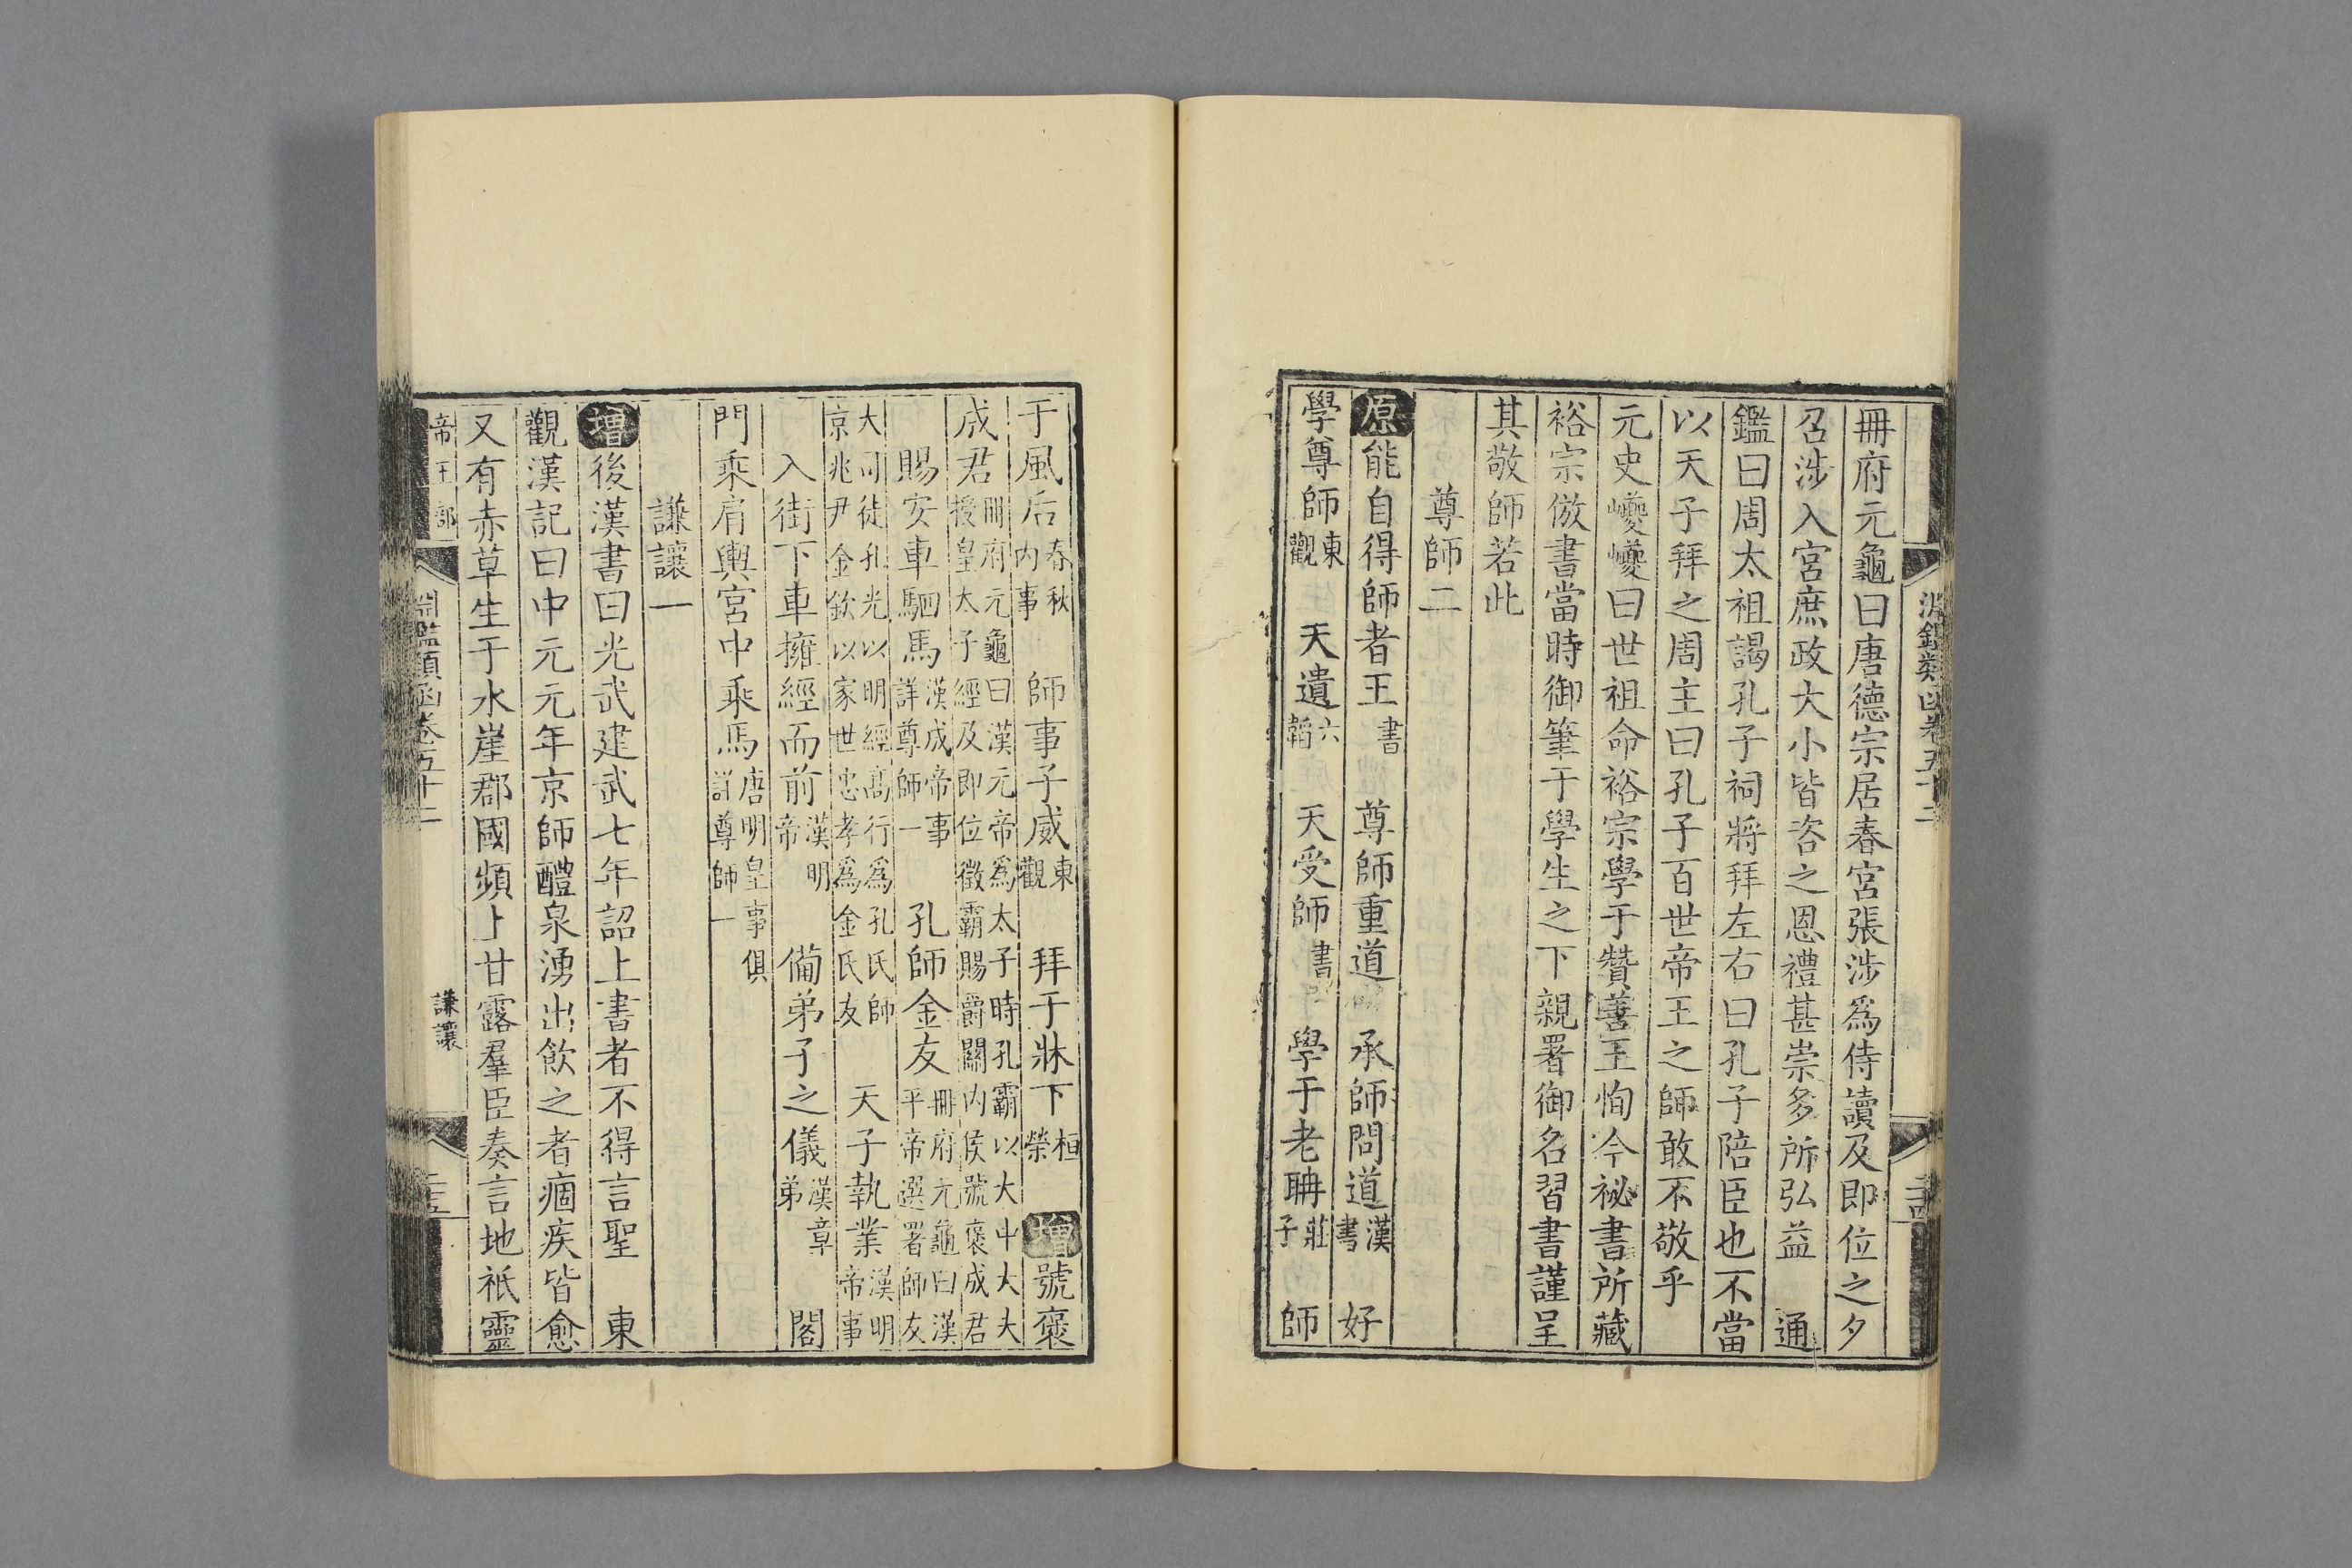 冊府元龜曰唐德宗居春宮張涉為侍讀及即位之夕
召涉入宮庶政大小皆咨之恩禮甚崇多所弘益　通
鑑曰周太祖謁孔子祠將拜左右曰孔子陪臣也不當
以天子拜之周主曰孔子百世帝王之師敢不敬乎
元史巙巙曰世祖命裕宗學于贊善王恂今祕書所藏
裕宗倣書當時御筆于學生之下親署御名習書謹呈
其敬師若此
尊師二
原能自得師者王書　尊師重道　承師問道漢書　好
學尊師東觀　天遺六韜　天受師書　學于老聃莊子　師
于風后春秋內事　師事子威東觀　拜于牀下桓榮　增號褒
成君冊府元龜曰漢元帝為太子時孔霸以大中大夫授皇太子經及即位徵霸賜爵關內侯號褒成君
賜安車駟馬漢成帝事詳尊師一　孔師金友冊府元龜曰漢平帝選署師友
大司徒孔光以明經高行為孔氏師京兆尹金欽以家世忠孝為金氏友　天子執業漢明帝事
入街下車擁經而前漢明帝　備弟子之儀漢章弟　閣
門乘肩輿宮中乘馬唐明皇事俱詳尊師一
謙讓一
增後漢書曰光武建武七年詔上書者不得言聖　東
觀漢記曰中元元年京師醴泉湧出飲之者痼疾皆愈
又有赤草生于水崖郡國頻上甘露羣臣奏言地祇靈
淵鑑類函卷五十二
二十四
帝王部
淵鑑類函卷五十二
謙讓
二十五